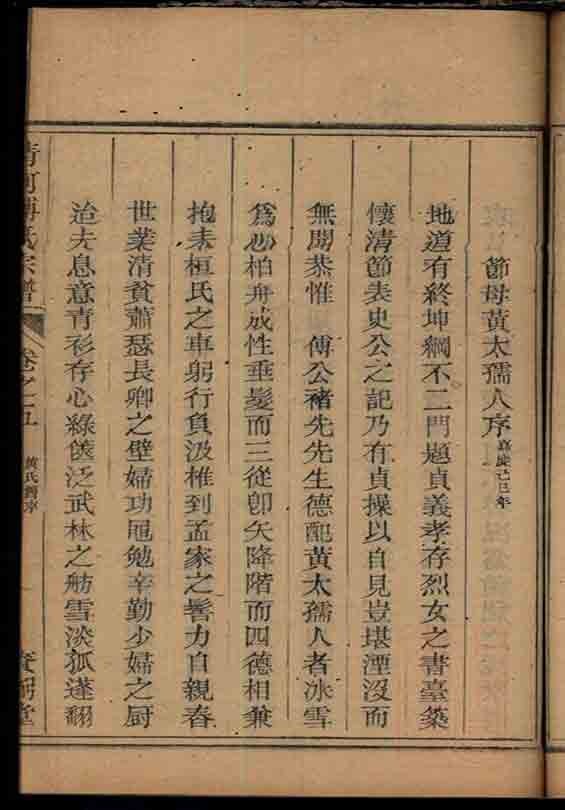 節母黃太孺人序嘉慶己巳年
地道有終坤綱不二門題貞義孝存烈女之書臺築
懷清節表史公之記乃有貞操以自見豈堪湮沒而
無聞恭惟 傅公褚先先生德配黃太孺人者冰雪
為 柏舟成性垂髮而三從卽矢降階而四德相兼
抱素桓氏之車躬行負汲椎到孟家之髻力自親舂
世業清貧蕭瑟長卿之壁婦功黽勉辛勤少婦之厨
迨夫息意青衫存心綠篋泛武林之舫雪淡狐蓬翻
清河傅氏宗譜 卷之五 黃氏舊序